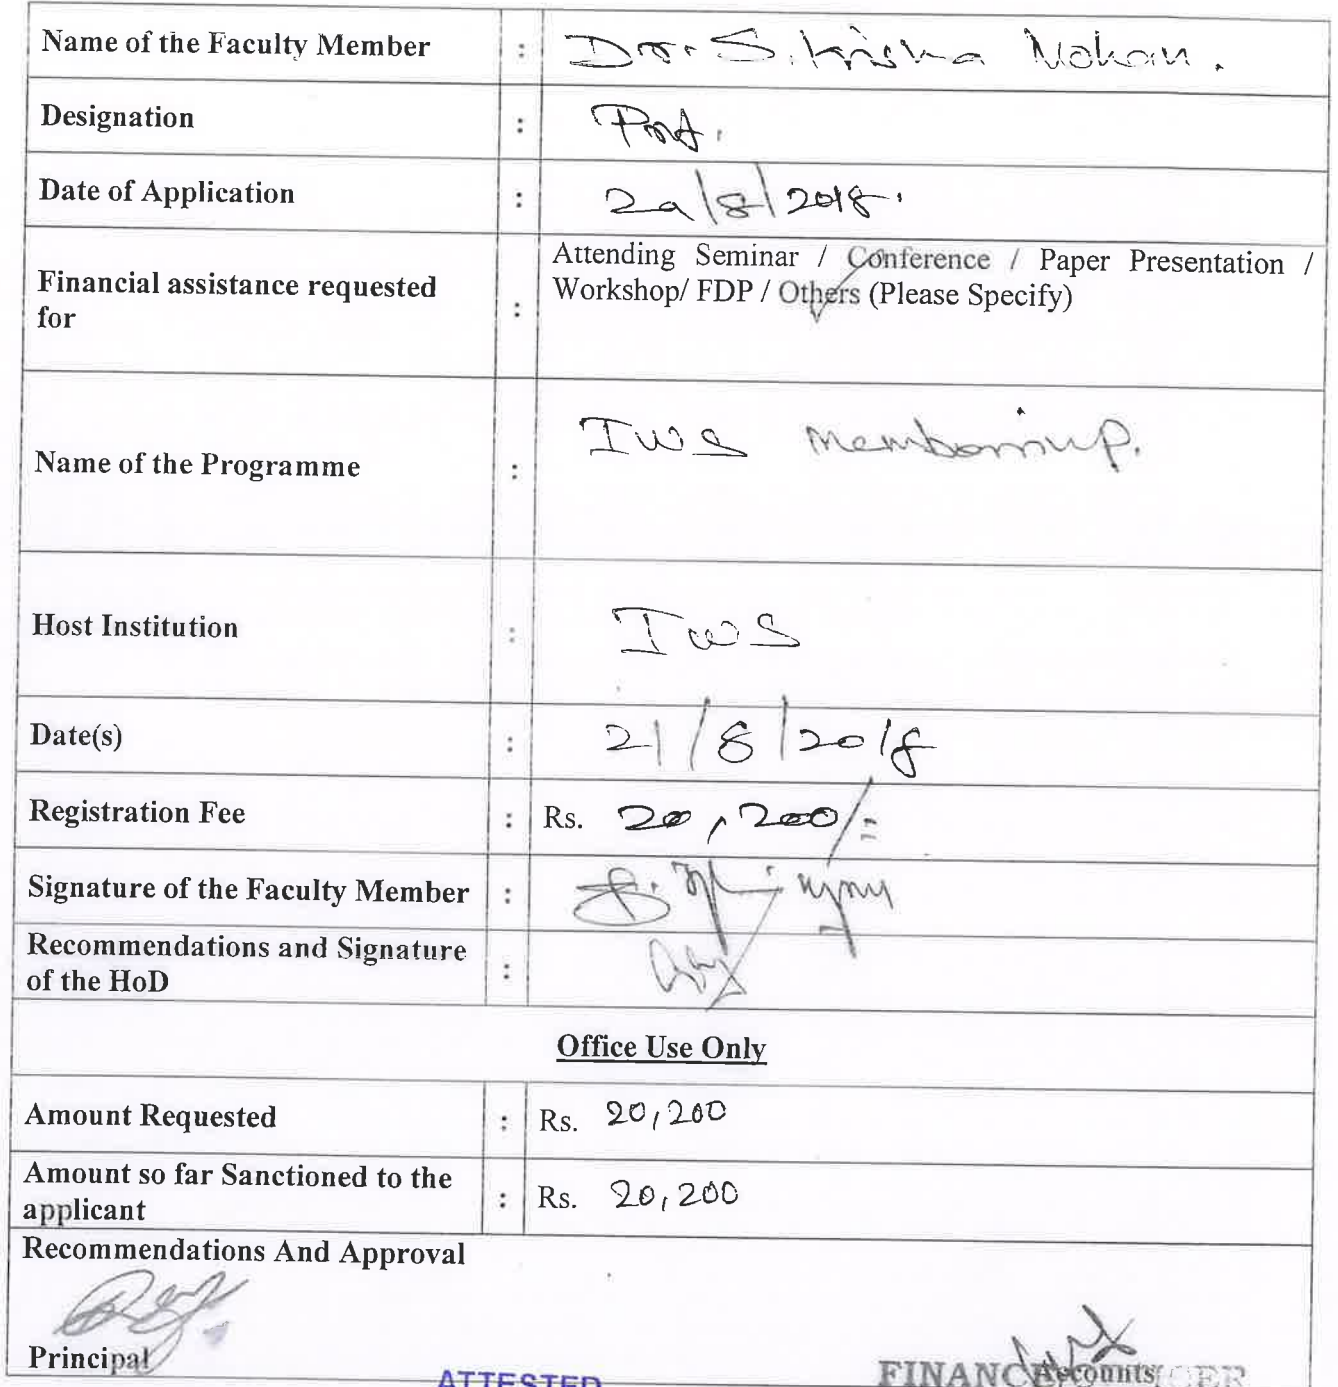 Name of the Faculty Member : Dr. S. Krishna Mohan.
Designation : Prof.
Date of Application : 20/8/2018.
Financial assistance requested for : Attending Seminar / Conference / Paper Presentation /
Workshop/ FDP / Others (Please Specify)
Name of the Programme : IWS Membership.
Host Institution : IWS
Date(s) : 21/8/2018
Registration Fee : Rs. 20,200/=
Signature of the Faculty Member :
Recommendations and Signature
of the HoD :
Office Use Only
Amount Requested : Rs. 20,200
Amount so far Sanctioned to the
applicant : Rs. 20,200
Recommendations And Approval
Principal
ATTESTED
FINANCE Accounts OFFICER